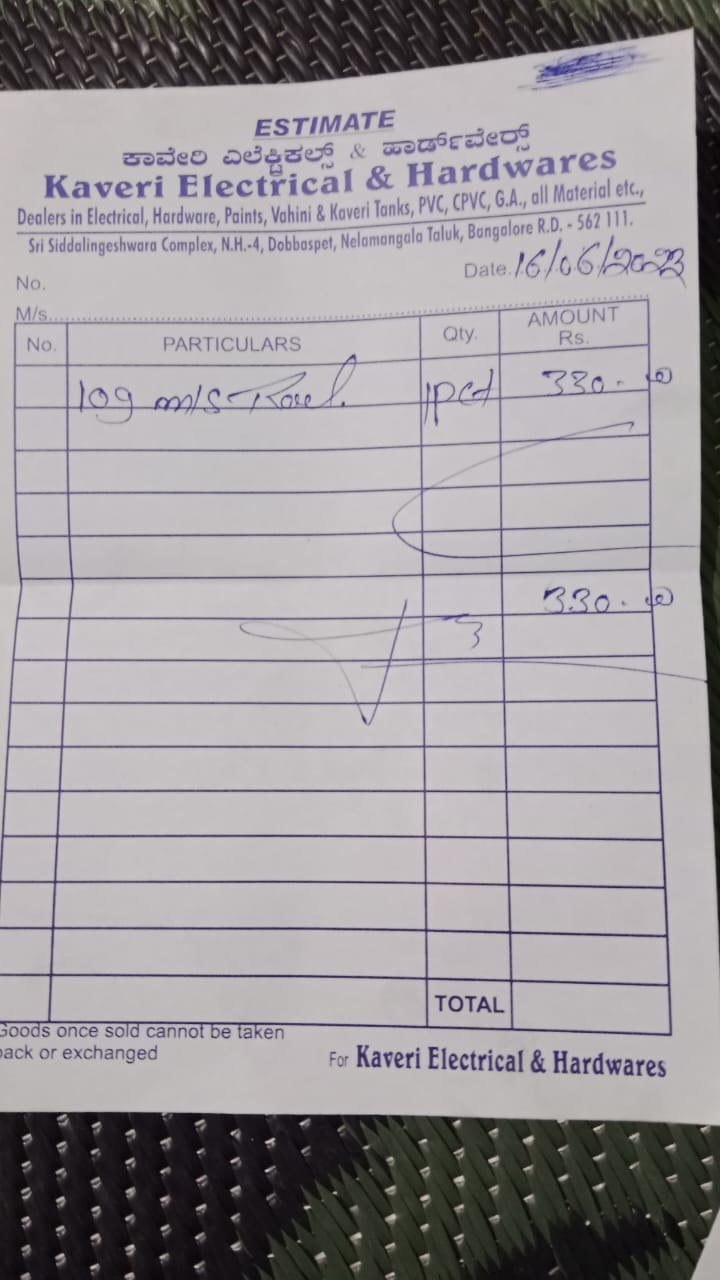 ESTIMATE
ಕಾವೇರಿ ಎಲೆಕ್ಟ್ರಿಕಲ್ಸ್ & ಹಾರ್ಡ್‌ವೇರ್ಸ್
Kaveri Electrical & Hardwares
Dealers in Electrical, Hardware, Paints, Vahini & Kaveri Tanks, PVC, CPVC, G.A., all Material etc.,
Sri Siddalingeshwara Complex, N.H.-4, Dobbaspet, Nelamangala Taluk, Bangalore R.D. - 562 111.
No.
Date. 16/06/2023
M/s
No. PARTICULARS Qty. AMOUNT Rs.
109 m/s 330.00
330.00
TOTAL
Goods once sold cannot be taken
back or exchanged
For Kaveri Electrical & Hardwares